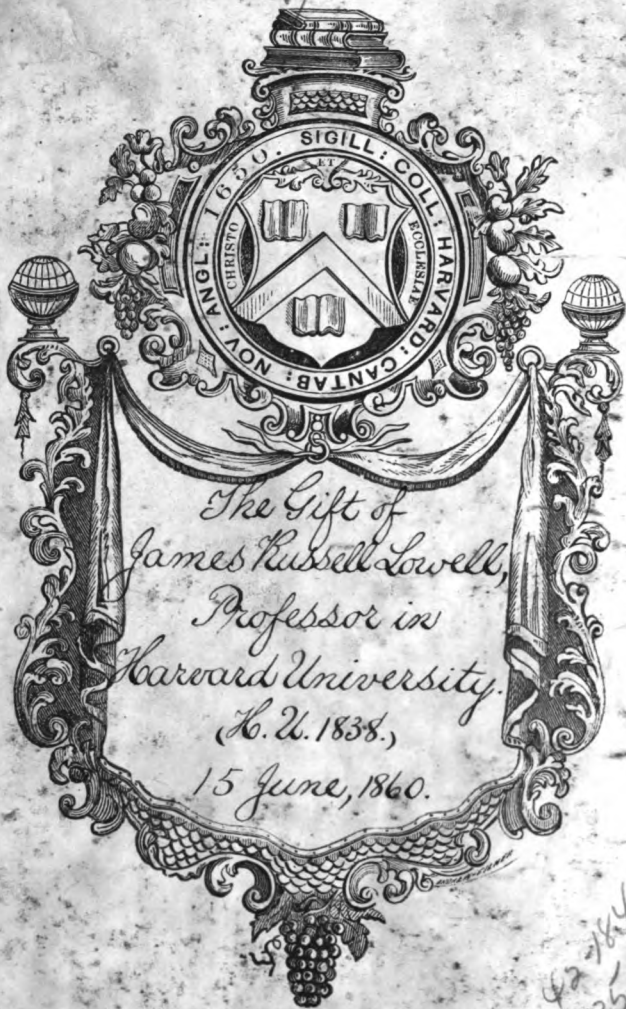 SIGILL: COLL: HARVARD: CANTAB: NOV: ANGL: 1650.
CHRISTO ET ECCLESIAE
The Gift of
James Russell Lowell,
Professor in
Harvard University.
(H. U. 1838.)
15 June, 1860.